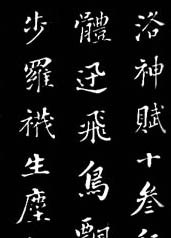 洛神賦十叁
體迅飛鳥飄
步羅襪生塵